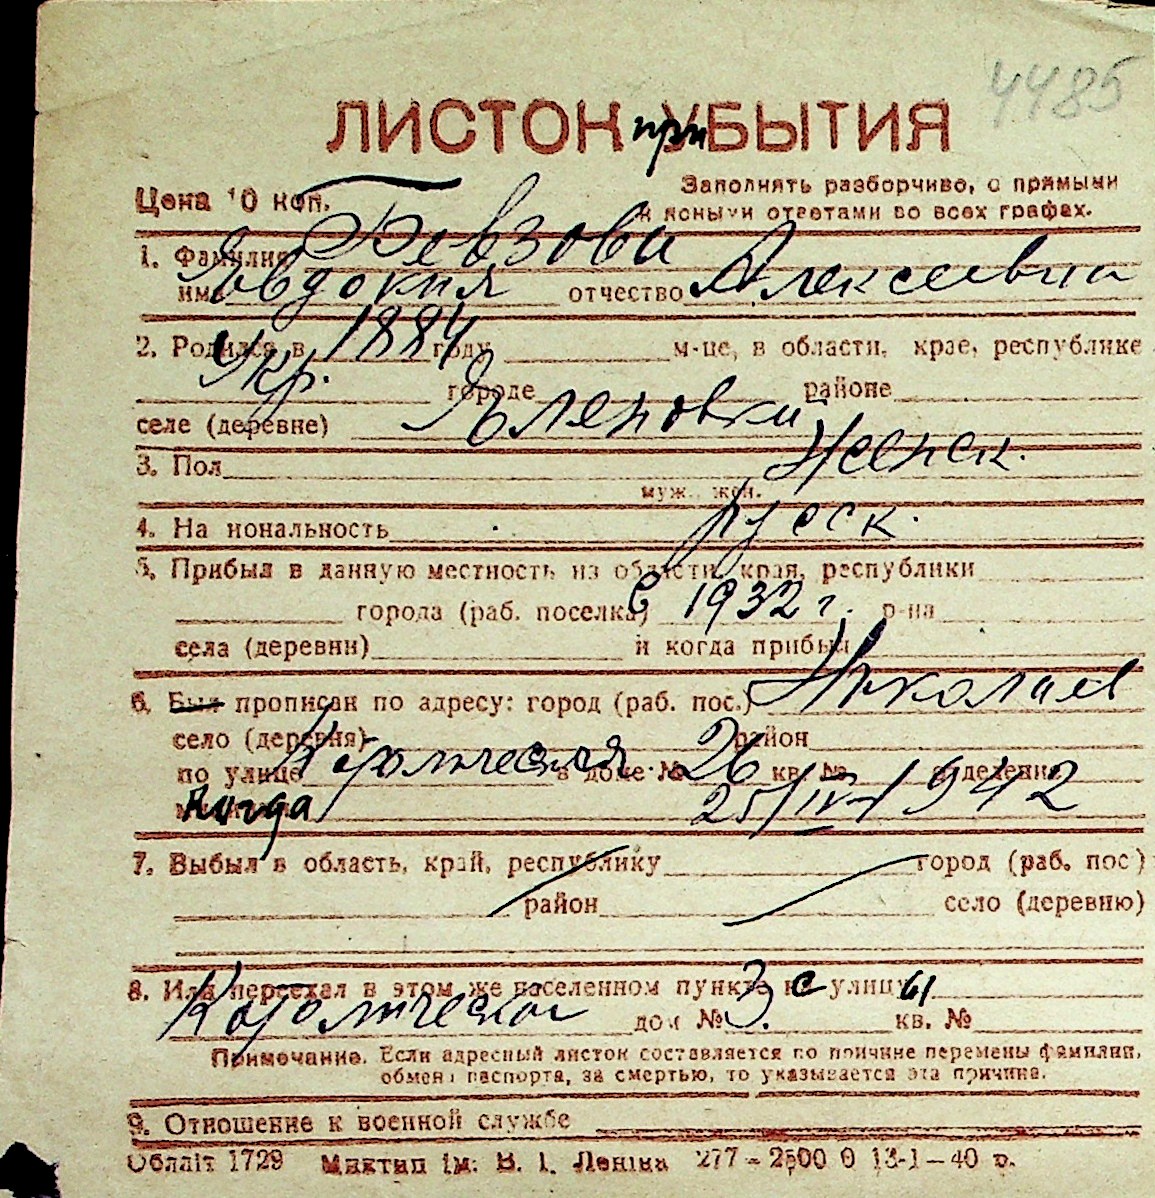 4485
ЛИСТОК при УБЫТИЯ
Цена 10 коп.
Заполнять разборчиво, с прямыми
и ясными ответами во всех графах.
1. Фамилия Бевзова
имя Явдокия отчество Алексеевна
2. Родился в 1884 году м-це, в области, крае, республике
Укр. городе районе
селе (деревне) Яленовка
3. Пол Женск.
муж., жен.
4. Национальность русск.
5. Прибыл в данную местность из области, края, республики
города (раб. поселка) С 1932 г. р-на
села (деревни) и когда прибыл
6. Был прописан по адресу: город (раб. пос.) Николаев
село (деревня) район
по улице в доме № 26 кв. № отделения
милиции Когда 25/IV-1942
7. Выбыл в область, край, республику город (раб. пос)
район село (деревню)
8. Или переехал в этом же населенном пункте с улицы
дом № 3. кв. №
Примечание. Если адресный листок составляется по причине перемены фамилии,
обмена паспорта, за смертью, то указывается эта причина.
9. Отношение к военной службе
Обллiт 1729 Миктип iм. В. I. Ленiна 277 – 2500 0 13-1–40 р.